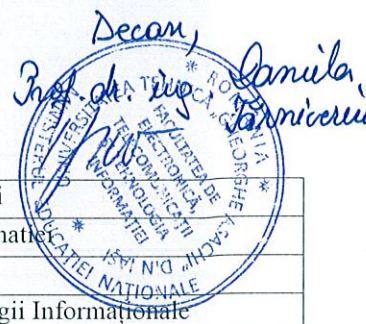 Decan,
Prof. dr. ing. Daniela
Tărniceriu
MINISTERUL EDUCAȚIEI NAȚIONALE * ROMÂNIA *
UNIVERSITATEA TEHNICĂ „GHEORGHE ASACHI" DIN IAȘI
FACULTATEA DE
ELECTRONICĂ,
TELECOMUNICAȚII
ȘI TEHNOLOGIA
INFORMAȚIEI
i
mației
gii Informaționale